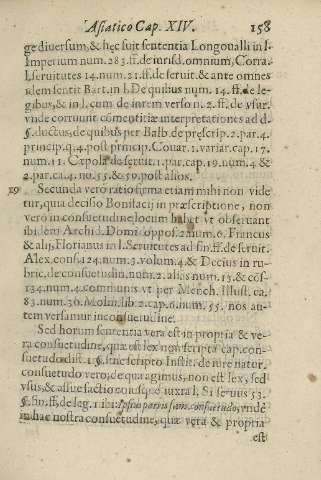 Asiatico Cap. XIV. 158
ge diversum, & hęc fuit sententia Longoualli in l.
Imperium num. 283. ff. de iurisd. omnium, Corra.
l. seruitutes 14. num. 21. ff. de seruit. & ante omnes
idem sentit Bart. in l. De quibus num. 14. ff. de le-
gibus, & in l. cum de in rem verso n. 2. ff. de vsur.
vnde corruunt cōmentitiæ interpretationes ad d.
§. ductus, de quibus per Balb. de pręscrip. 2. par. 4.
princip. q. 4. post princip. Couar. 1. variar. cap. 17.
num. 11. Cępola de seruit. 1. par. cap. 19. num. 4. &
2. par. ca. 4. no. 55. & 59. post alios.
Secunda vero ratio firma etiam mihi non vide
tur, qua decisio Bonifacij in pręscriptione, non
vero in consuetudine locum habet vt obseruant
ibi. Archi. Domi. oppos. 2. num. 6. Francus
& alij, Florianus in l. Seruitutes ad fin. ff. de seruit.
Alex. cons. 124. num. 3. volum. 4. & Decius in ru-
bric. de consuetudin. num. 2. alias num. 13. & cōs-
134. num. 4. communis vt per Mench. Illust. ca.
83. num. 30. Molin. lib. 2. cap. 6. num. 55. nos an-
tem versamur in consuetudine.
Sed horum sententia vera est in propria & ve-
ra consuetudine, quæ est lex non scripta cap. con-
suetudo dist. 1. §. sine scripto Instit. de iure natur.
consuetudo vero, de qua agimus, non est lex, sed
vsus, & assuefactio cuiusque iuxta l. Si seruus 53.
§. fin. ff. de leg. 1. ibi: consuetudo, vnde
in hac nostra consuetudine, quæ vera & propria
est